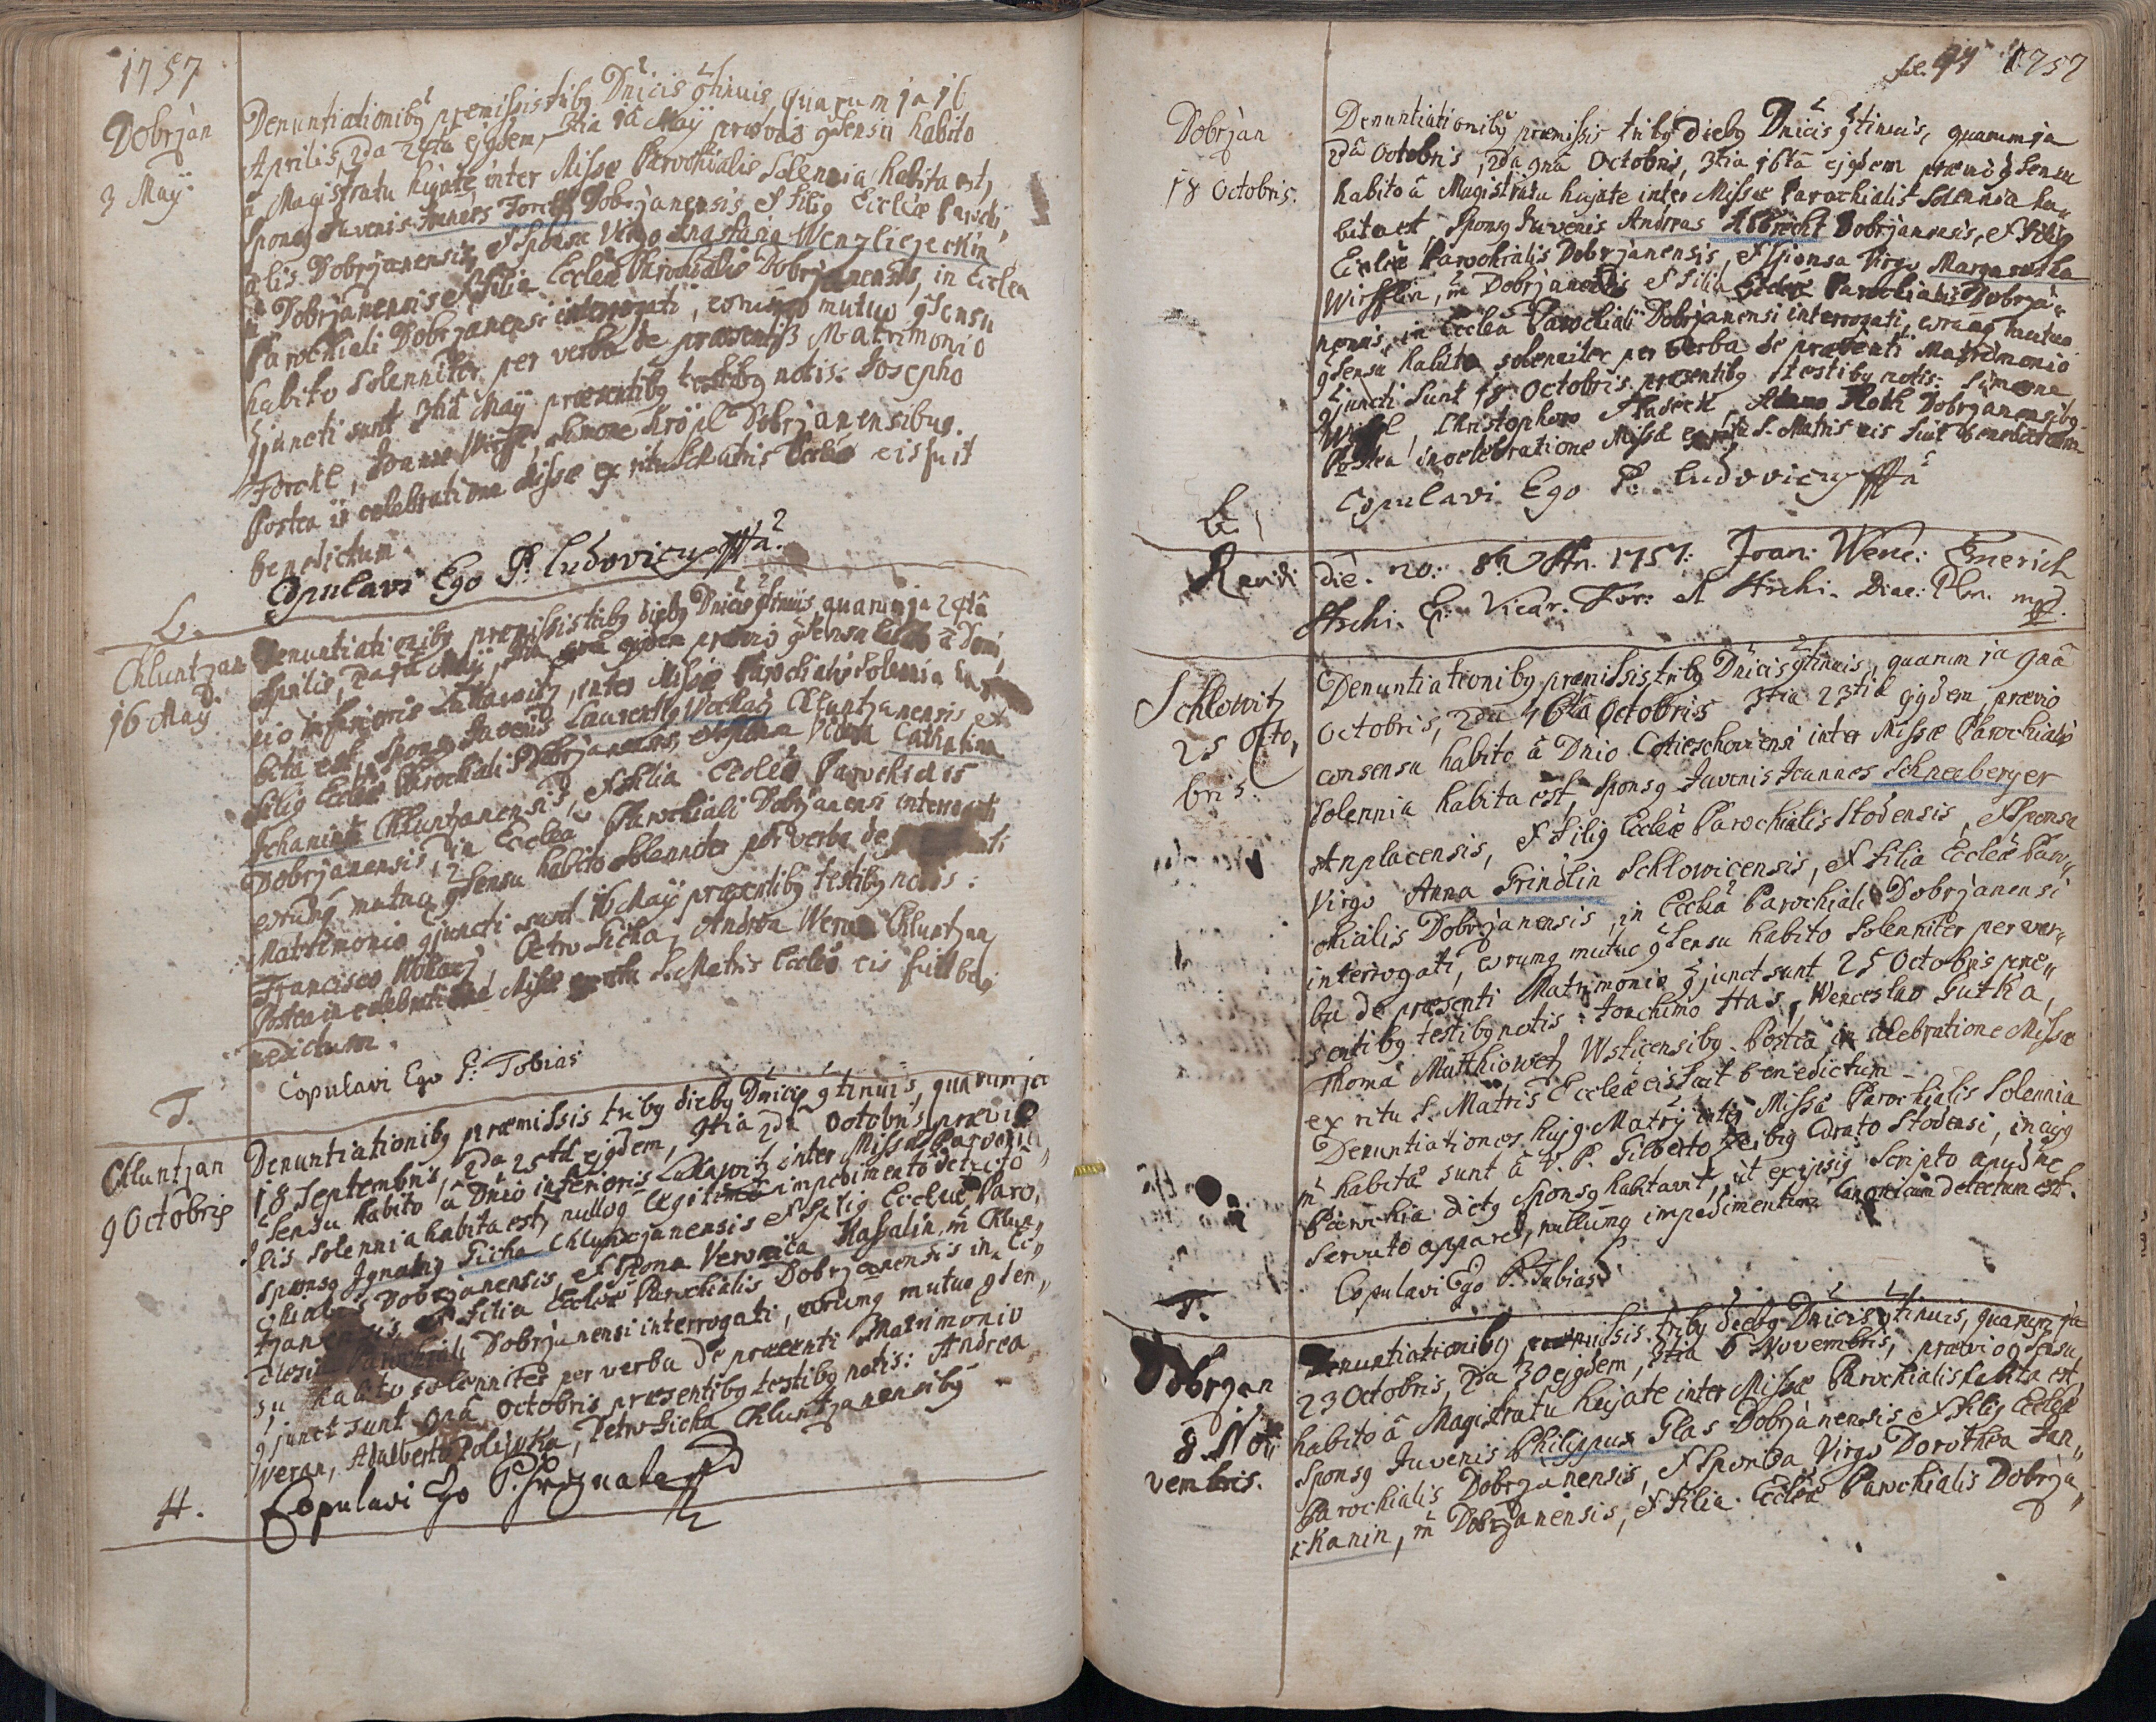 1757
Dobrjan
3 Maÿ
Denuntiationibq præmissis tribq Dnicis gtinuis, quarum ja jl
Aprilis, 2da 24ta ejqdem, 3tia ja Maÿ prævio gsensu habito
â Magistratu hujate, inter Missæ Parochialis Solennia habita est,
Sponsq Juvenis Joannes Forckl Dobrjanensis, et Filiq Eccleæ Parochi,
alis Dobrjanensis, et Sponsa Virgo Anastasia Wenzliczeckin
Dobrjanensis et Filia Eccleæ Parochialis Dobrjanensis, in Eccleâ
Parochiali Dobrjanensi interrogati, eorumq mutuo gsensu
habito Solenniter per verba de præsenti Matrimonio
gjuncti sunt 3tia Maÿ præsentibq testibq notis: Josepho
Forckl, Joanne Simone Kröpl Dobrjanensibus.
Postea in celebratione Missæ ex ritu S. Matris Eccleæ eis fuit
benedictum.
Copulavi Ego P. Ludovicq
L.
Chluntzan
16 Maÿ
Denuntiationibq præmissis tribq diebq Dnicis gtinuis, quarum ja 24tâ
Aprilis, 2da ja Maÿ, ejqdem prævio gsensu â Domi,
nio inferioris Lukawitz, inter Missæ Parochialis Solennia
bita est, Sponsq Juvenis Laurentiq Chluntzanensis et
Filiq Eccleæ Parochialis Dobrjanensis, et Sponsa Vidua Catharina
Chluntzanensis, et Filia Eccleæ Parochialis
Dobrjanensis, in Eccleâ Parochiali Dobrjanensi interrogati
eorumq mutuo gsensu habito solenniter per verba de
Matrimonio gjuncti sunt 16 Maÿ præsentibq testibq notis:
Francisco Petro Sicha, Andrea Weran Chluntzan
Postea in celebratione Missæ ex ritu S. Matris Eccleæ eis fuit be,
nedictum.
Copulavi Ego P. Tobias
T.
Chluntzan
9 Octobris
Denuntiationibq præmissis tribq diebq Dnicis gtinuis, quarum ja
18 Septembris, 2da 25ta ejqdem, 3tia 2da Octobris, prævio
gsensu habito â Dnio inferioris Lukawitz inter Missæ Parochia,
lis solennia habita est, nulloq legitimo impedimento detecto
Sponsq Ignatiq Sicha Chluntzanensis et Filiq Eccleæ Paro,
chialis Dobrjanensis, et Sponsa Veronica Kassalin, Chlun,
tzanensis et Filia Eccleæ Parochialis Dobrjanensis in Ec,
clesia Parochiali Dobrjanensi interrogati, eorumq mutuo gsen,
su habito, solenniter per verba de præsenti Matrimonio
gjuncti sunt 9nâ Octobris præsentibq testibq notis: Andrea
Weran, Adalberto Polifka, Petro Sicha Chluntzanensibq
H.
Copulavi Ego P.
fol. 94 1757
Dobrjan
18 Octobris.
Denuntiationibq præmissis tribq diebq Dnicis gtinuis, quarum ja
2dâ Octobris, 2da 9nâ Octobris, 3tia 16tâ ejqdem prævio gsensu
habito â Magistratu hujate inter Missæ Parochialis Solennia ha,
bita est, Sponsq Juvenis Andreas Albrecht Dobrjanensis, et Filiq
Eccleæ Parochialis Dobrjanensis, et Sponsa Virgo Margaretha
Dobrjanensis et Filia Eccleæ Parochialis Dobrja,
nensis, in Eccleâ Parochiali Dobrjanensi interrogati, eorumq mutuo
gsensu habito solenniter per verba de præsenti Matrimonio
gjuncti sunt 18 Octobris præsentibq testibq notis: Simone
Christophoro Adamo Roth Dobrjanensibq.
Postea in celebratione Missæ ex ritu S. Matris eis fuit benedictum
L.
Copulavi Ego P. Ludovicq
Revidi die. 20. 8br. 1757: Joan: Wenc: Emerich
Archi. Vicar. For: et Archi. Diac: Pln. mp.
Schlowitz
25 Octo,
bris.
Denuntiationibq præmissis tribq Dnicis gtinuis, quarum ja 9nâ
Octobris, 2da 16ta Octobris 3tia 23tiâ ejqdem, prævio
consensu habito â Dnio Chotieschoviensi inter Missæ Parochialis
Solennia habita est, Sponsq Juvenis Joannes Schneeberger
Anplacensis, et Filiq Eccleæ Parochialis Stodensis, et Sponsa
Virgo Anna Frindlin Schlowicensis, et Filia Eccleæ Paro,
chialis Dobrjanensis, in Eccleâ Parochiali Dobrjanensi
interrogati, eorumq mutuo gsensu habito Solenniter per ver,
ba de præsenti Matrimonio gjuncti sunt 25 Octobris præ,
sentibq testibq notis: Joachimo Has, Wenceslao Gutha,
Thoma Matthiowetz Wsticensibq. Postea in celebratione Missæ
ex ritu S. Matris Eccleæ eis fuit benedictum
Denuntiationes hujq Matrÿ inter Missæ Parochialis Solennia
habitæ sunt â V. P. Gilberto Curato Stodensi, in cujq
Parochia dictq Sponsq habitavit, ut ex ipsiq Scripto apud me
Servato apparet, nullumq impedimentum Canonicum detectum est.
Copulavi Ego P. Tobias
T.
Dobrjan
8 No,
vembris.
Denuntiationibq præmissis tribq diebq Dnicis gtinuis, quarum ja
23 Octobris, 2da 30 ejqdem, 3tia 6 Novembris, prævio gsensu
habito â Magistratu hujate inter Missæ Parochialis habita est,
Sponsq Juvenis Philippus Glas Dobrjanensis et Filiq Eccleæ
Parochialis Dobrjanensis, et Sponsa Virgo Dorothea Jan,
ckanin, Dobrjanensis, et Filia Eccleæ Parochialis Dobrja,